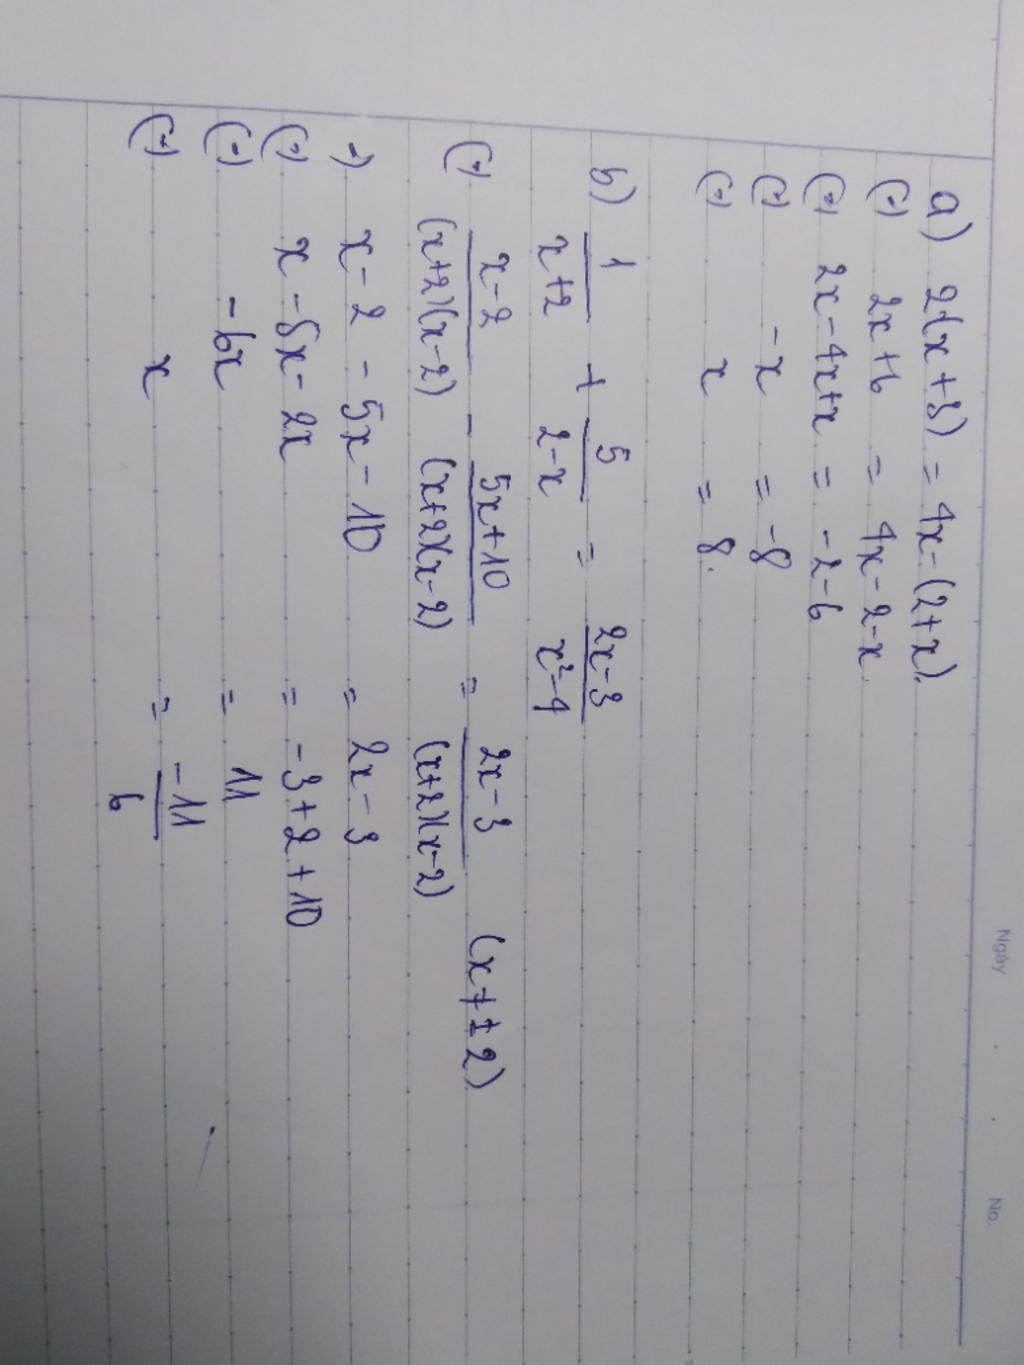 Ngày . . No.
a) 2(x+3) = 4x-(2+x).
(=) 2x+6 = 4x-2-x.
(=) 2x-4x+x = -2-6
(=) -x = -8
(=) x = 8.
b) 1/(x+2) + 5/(2-x) = (2x-3)/(x²-4)
(=) (x-2)/((x+2)(x-2)) - (5x+10)/((x+2)(x-2)) = (2x-3)/((x+2)(x-2)) (x≠±2)
=) x-2-5x-10 = 2x-3
(=) x-5x-2x = -3+2+10
(=) -6x = 11
(=) x = -11/6